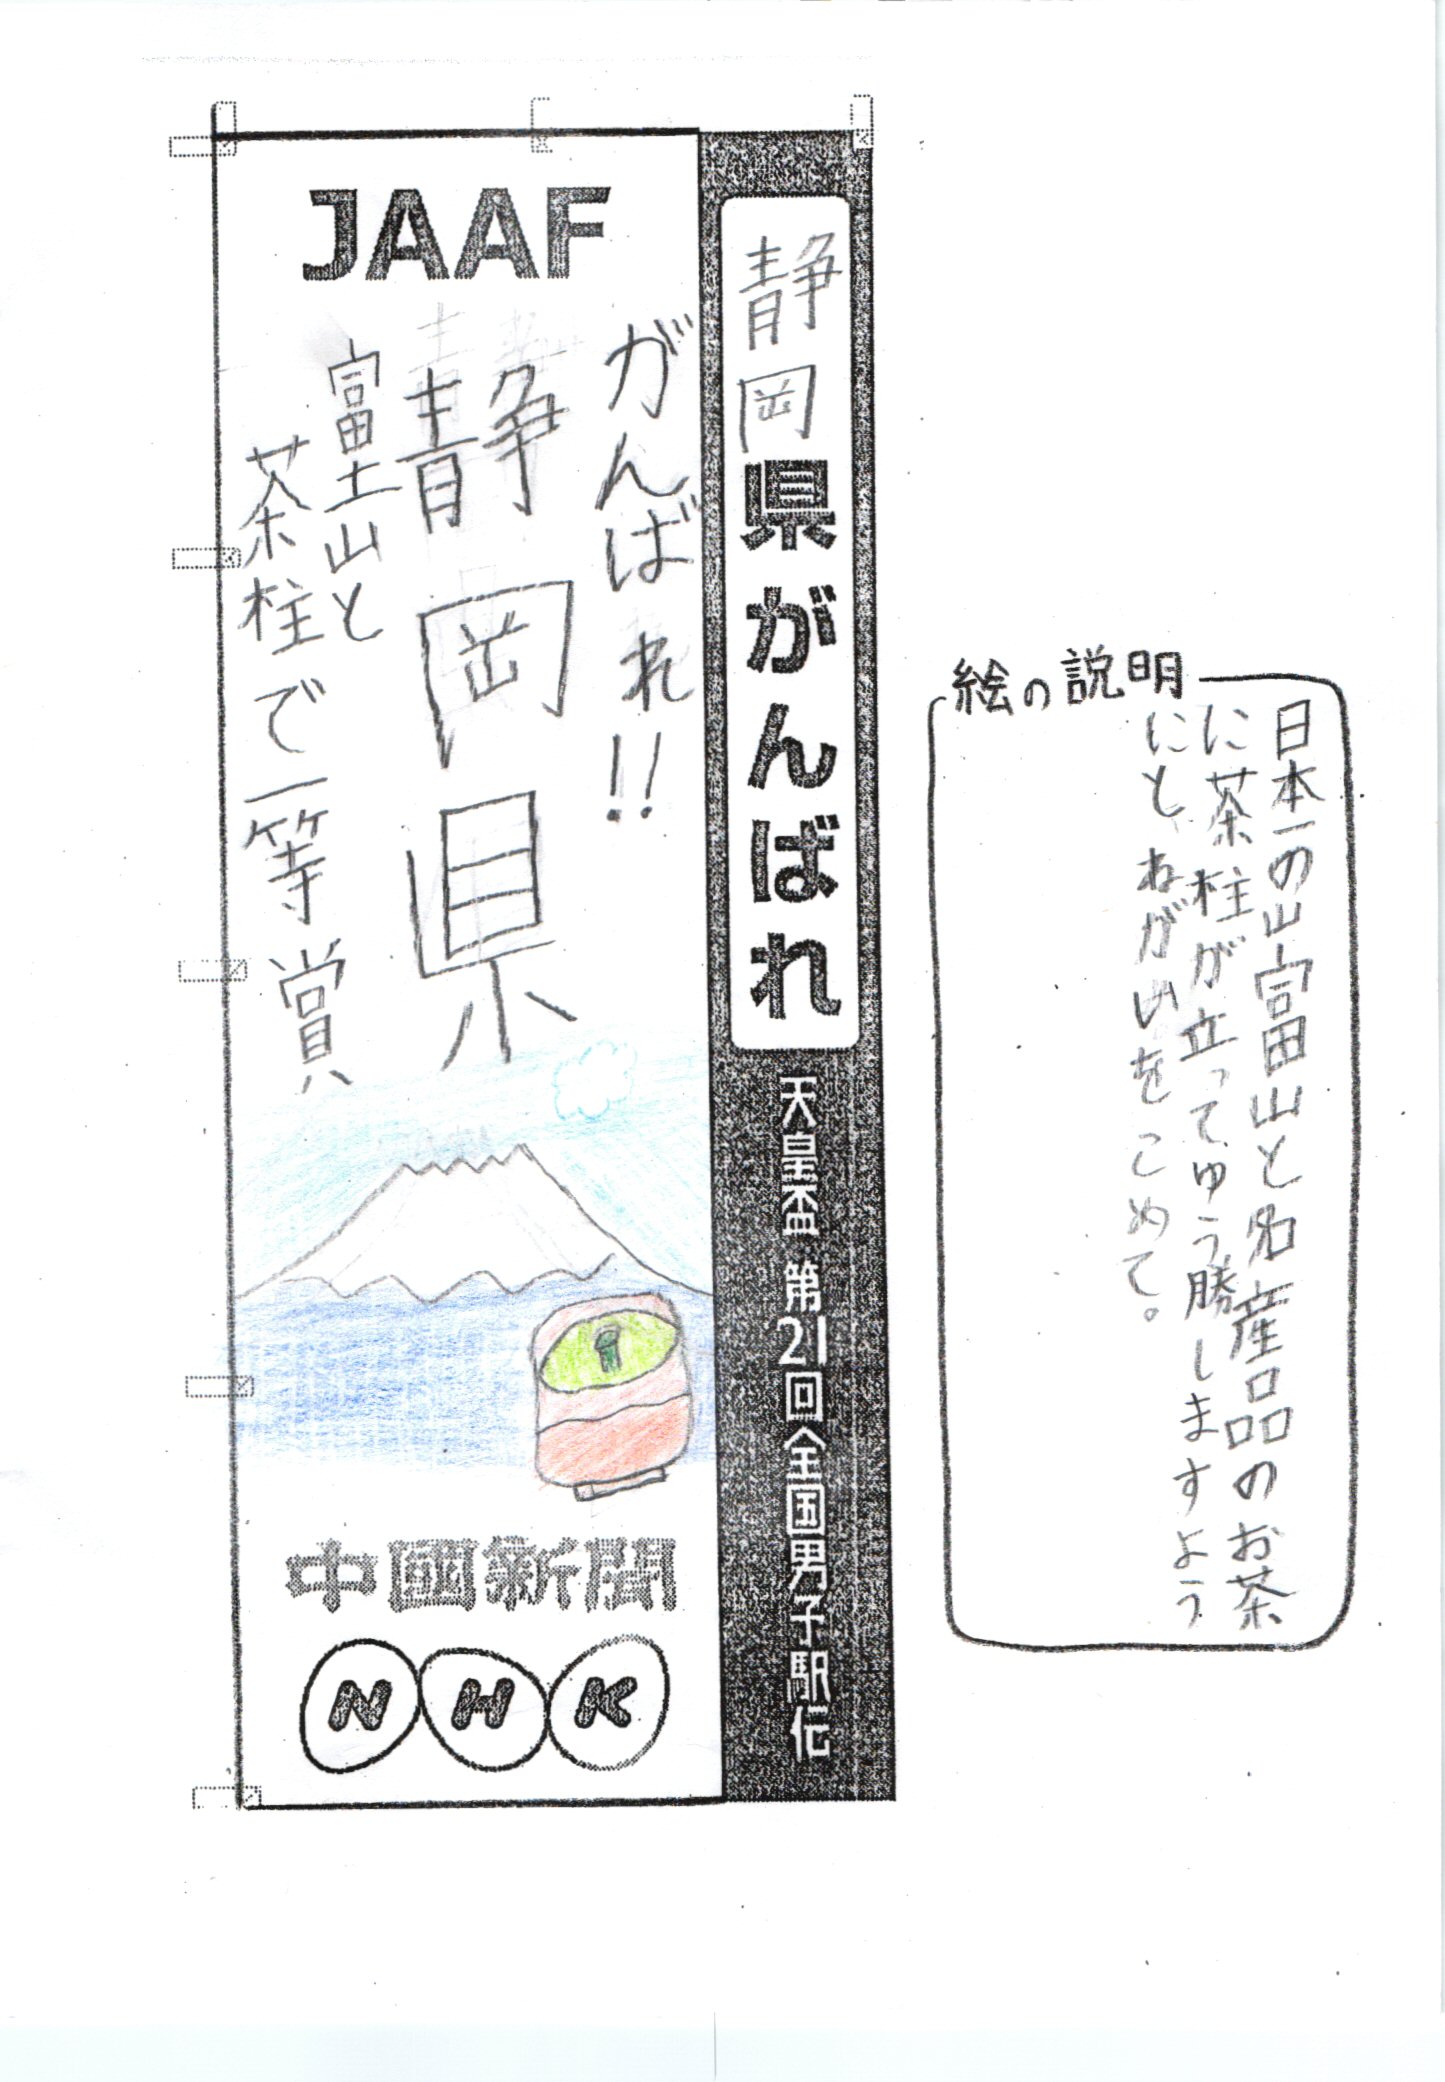 JAAF
静岡県がんばれ
天皇盃 第21回全国男子駅伝
がんばれ!!
静岡県
富士山と
茶柱で一等賞
中國新聞
NHK
絵の説明
日本一の山富山と名産品のお茶
に茶柱が立ってゆう勝しますよう
にと、ねがいをこめて。